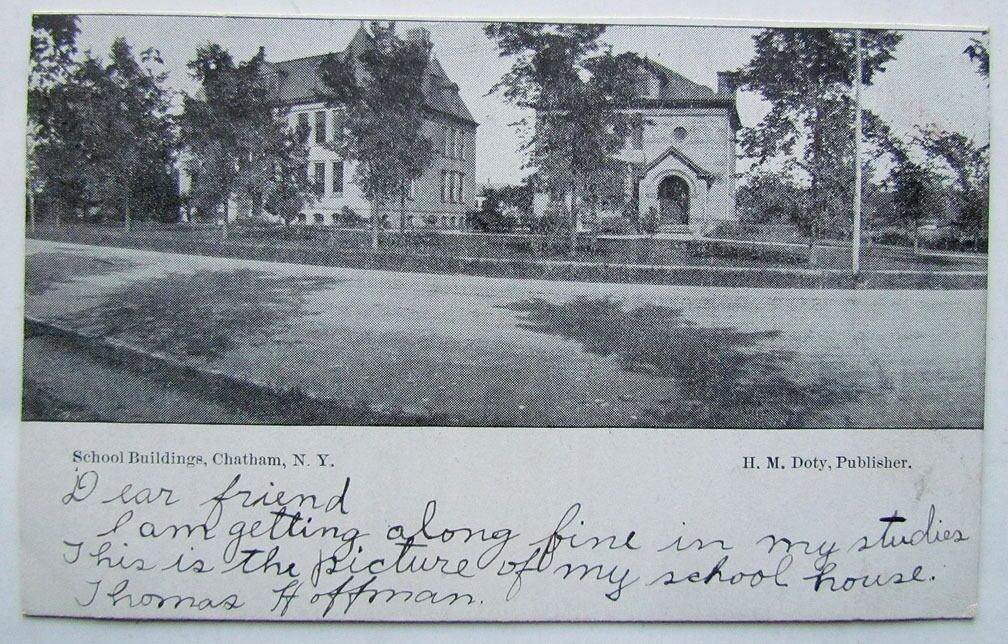 School Buildings, Chatham, N. Y.
H. M. Doty, Publisher.
Dear friend
I am getting along fine in my studies
This is the picture of my school house.
Thomas Hoffman.